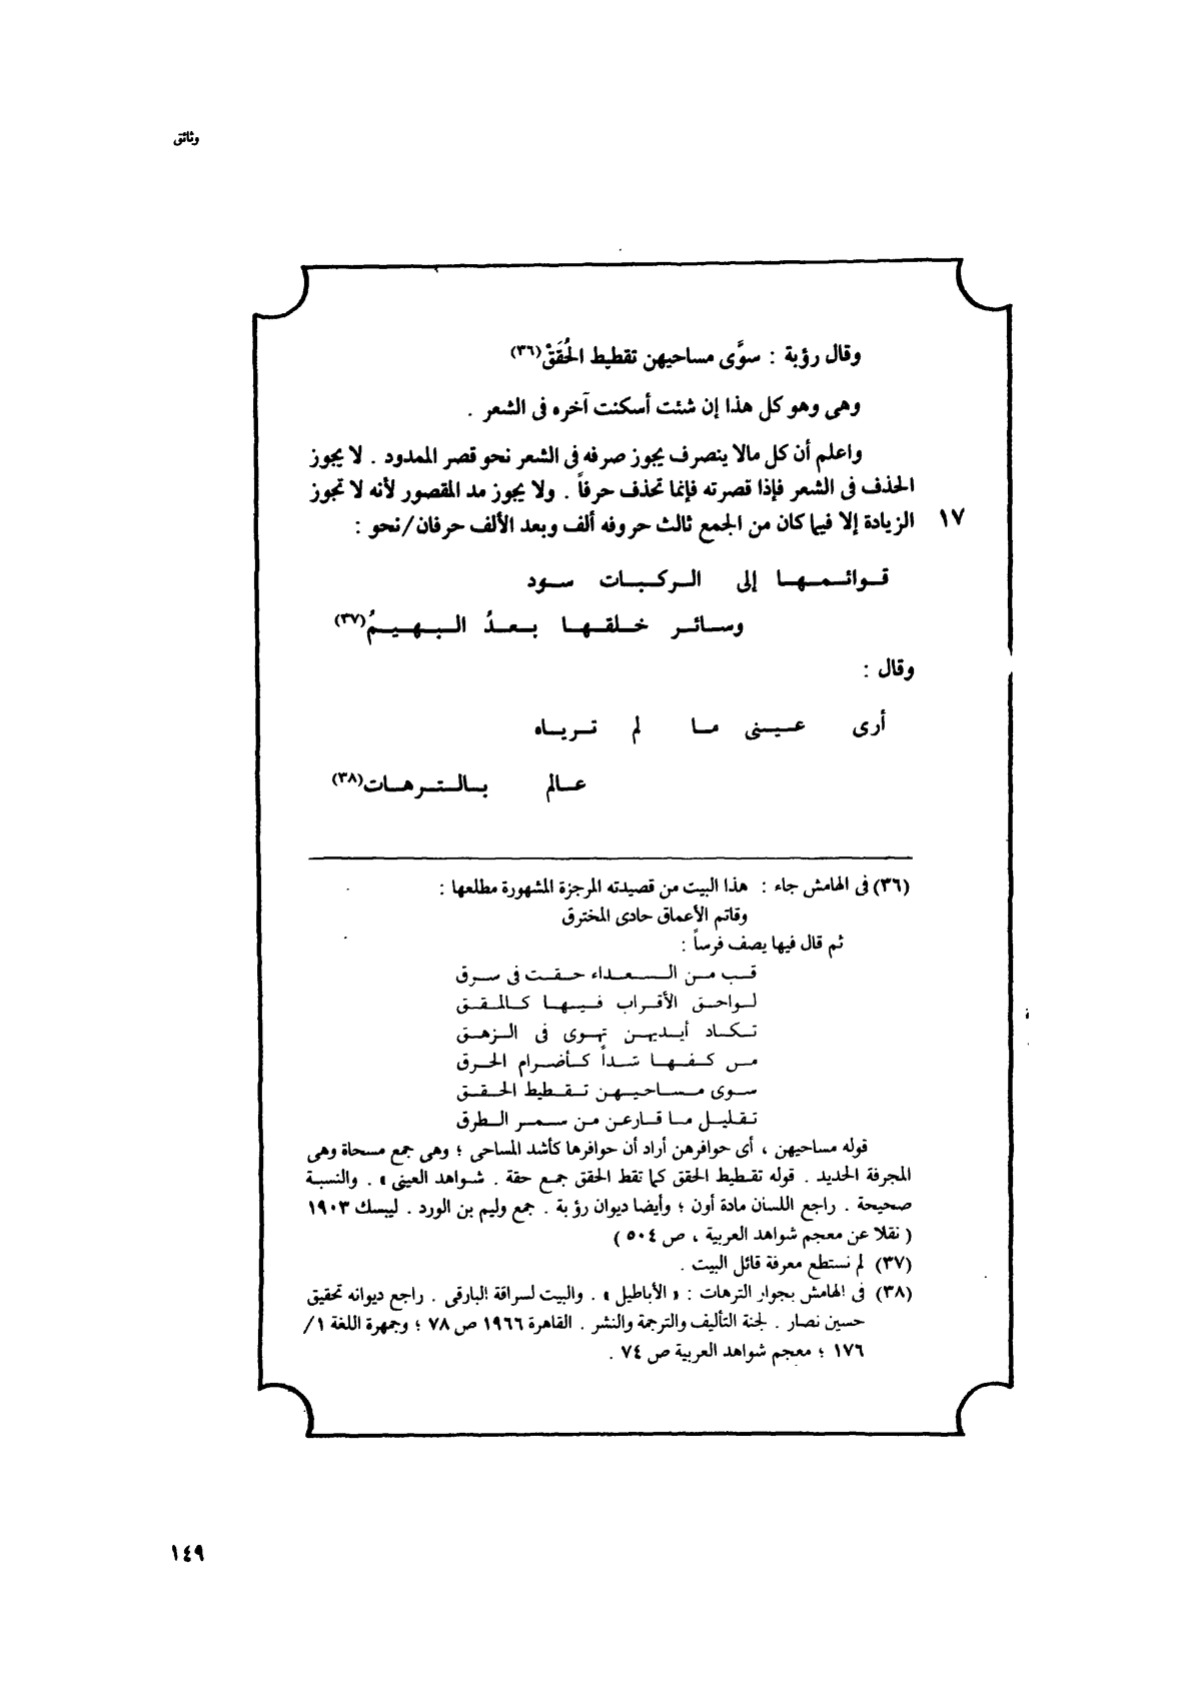 وثائق
وقال رؤبة : سوَّى مساحيهن تقطيط الحُقَقْ(٣٦)
وهى وهو كل هذا إن شئت أسكنت آخره فى الشعر .
واعلم أن كل مالا ينصرف يجوز صرفه فى الشعر نحو قصر الممدود . لا يجوز
الحذف فى الشعر فإذا قصرته فإنما تحذف حرفاً . ولا يجوز مد المقصور لأنه لا تجوز
١٧ الزيادة إلا فيما كان من الجمع ثالث حروفه ألف وبعد الألف حرفان/نحو :
قوائمها إلى الركبات سود
وسائر خلقها بعدُ البهيمُ(٣٧)
وقال :
أرى عينى ما لم ترياه
عالم بالترهات(٣٨)
(٣٦) فى الهامش جاء : هذا البيت من قصيدته المرجزة المشهورة مطلعها :
وقاتم الأعماق حادى المخترق
ثم قال فيها يصف فرساً :
قب من السعداء حقت فى سرق
لواحق الأقراب فيها كالمقق
تكاد أيديهن تهوى فى الزهق
من كفها شداً كأضرام الحرق
سوى مساحيهن تقطيط الحقق
تقليل ما قارعن من سمر الطرق
قوله مساحيهن ، أى حوافرهن أراد أن حوافرها كأشد المساحى ؛ وهى جمع مسحاة وهى
المجرفة الحديد . قوله تقطيط الحقق كما تقط الحقق جمع حقة . شواهد العينى » . والنسبة
صحيحة . راجع اللسان مادة أون ؛ وأيضا ديوان رؤبة . جمع وليم بن الورد . ليبسك ١٩٠٣
( نقلا عن معجم شواهد العربية ، ص ٥٠٤ )
(٣٧) لم نستطع معرفة قائل البيت .
(٣٨) فى الهامش بجوار الترهات : « الأباطيل » . والبيت لسراقة البارقى . راجع ديوانه تحقيق
حسين نصار . لجنة التأليف والترجمة والنشر . القاهرة ١٩٦٦ ص ٧٨ ؛ وجمهرة اللغة ١/
١٧٦ ؛ معجم شواهد العربية ص ٧٤ .
١٤٩